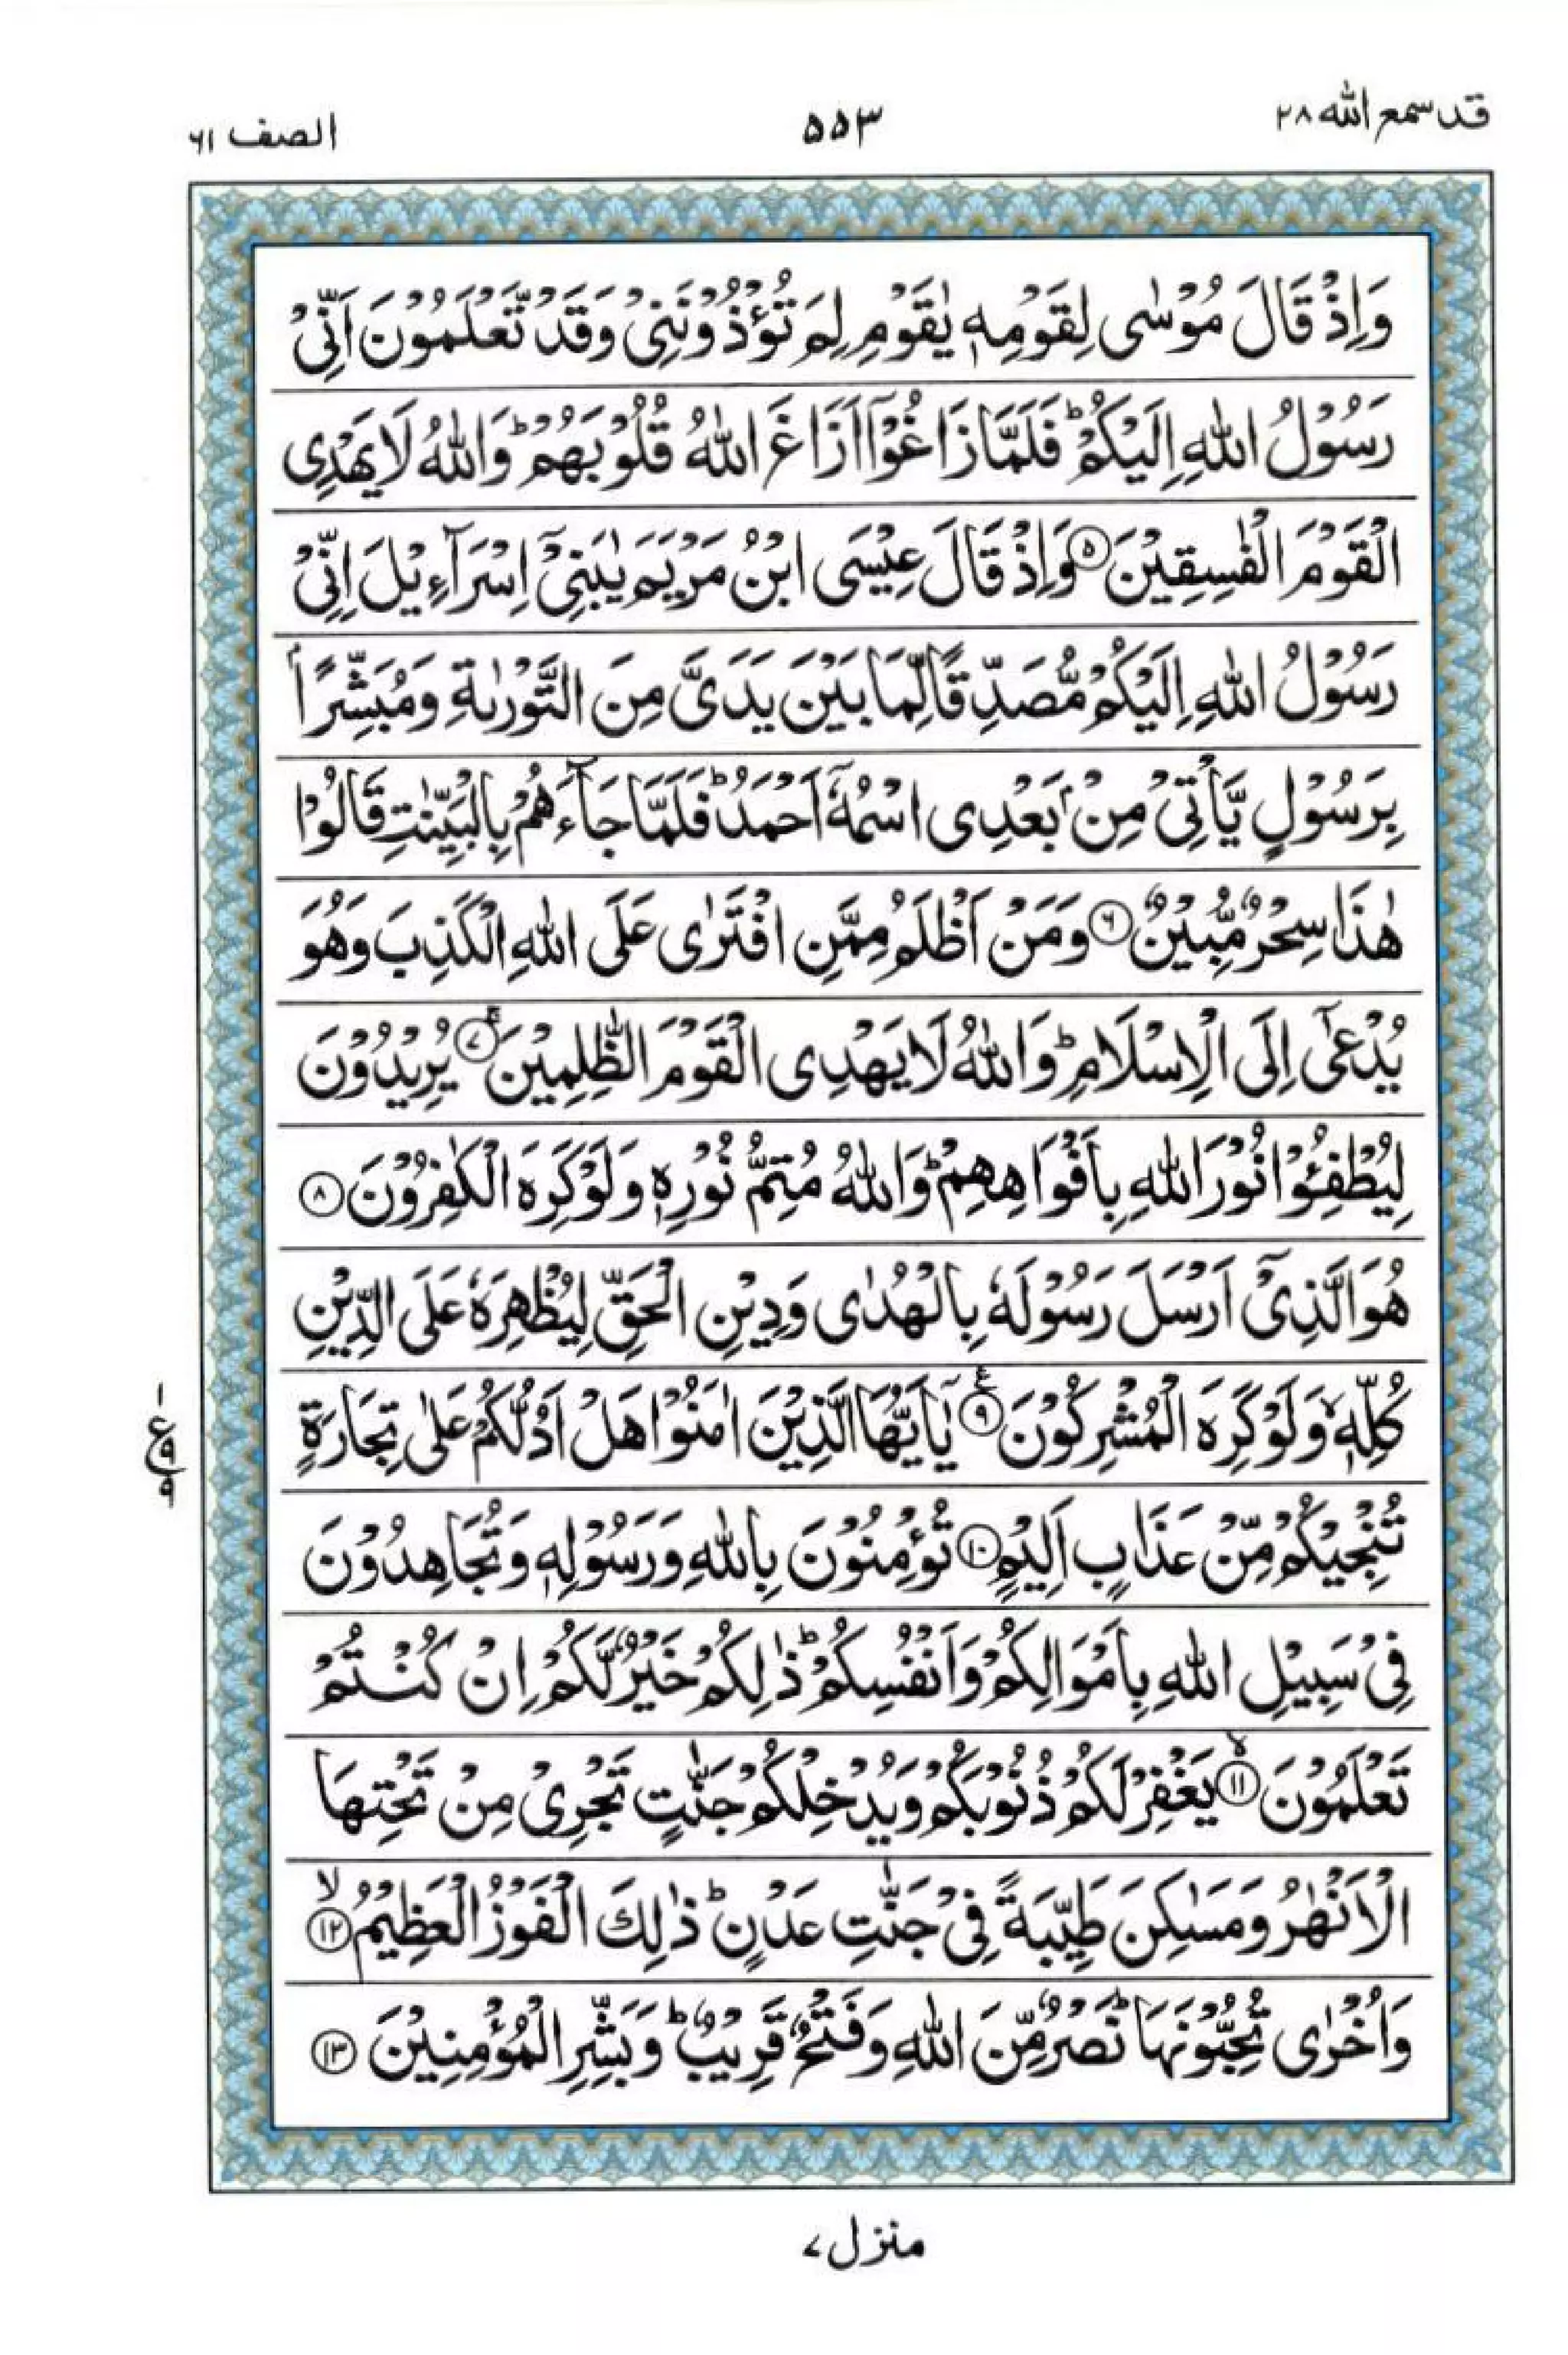 قد سمع الله ٢٨
٥٥٣
الصف ٦١
وَاِذْ قَالَ مُوْسٰى لِقَوْمِهٖ يٰقَوْمِ لِمَ تُؤْذُوْنَنِيْ وَقَدْ تَّعْلَمُوْنَ اَنِّيْ
رَسُوْلُ اللّٰهِ اِلَيْكُمْ ؕ فَلَمَّا زَاغُوْۤا اَزَاغَ اللّٰهُ قُلُوْبَهُمْ ؕ وَاللّٰهُ لَا يَهْدِى
الْقَوْمَ الْفٰسِقِيْنَ ۝٥ وَاِذْ قَالَ عِيْسَى ابْنُ مَرْيَمَ يٰبَنِيْۤ اِسْرَآءِيْلَ اِنِّيْ
رَسُوْلُ اللّٰهِ اِلَيْكُمْ مُّصَدِّقًا لِّمَا بَيْنَ يَدَيَّ مِنَ التَّوْرٰىةِ وَمُبَشِّرًاۢ
بِرَسُوْلٍ يَّاْتِيْ مِنْۢ بَعْدِى اسْمُهٗۤ اَحْمَدُ ؕ فَلَمَّا جَآءَهُمْ بِالْبَيِّنٰتِ قَالُوْا
هٰذَا سِحْرٌ مُّبِيْنٌ ۝٦ وَمَنْ اَظْلَمُ مِمَّنِ افْتَرٰى عَلَى اللّٰهِ الْكَذِبَ وَهُوَ
يُدْعٰۤى اِلَى الْاِسْلَامِ ؕ وَاللّٰهُ لَا يَهْدِى الْقَوْمَ الظّٰلِمِيْنَ ۝٧ۚ يُرِيْدُوْنَ
لِيُطْفِـُٔوْا نُوْرَ اللّٰهِ بِاَفْوَاهِهِمْ ؕ وَاللّٰهُ مُتِمُّ نُوْرِهٖ وَلَوْ كَرِهَ الْكٰفِرُوْنَ ۝٨
هُوَ الَّذِيْۤ اَرْسَلَ رَسُوْلَهٗ بِالْهُدٰى وَدِيْنِ الْحَقِّ لِيُظْهِرَهٗ عَلَى الدِّيْنِ
كُلِّهٖ ۙ وَلَوْ كَرِهَ الْمُشْرِكُوْنَ ۝٩ع يٰۤاَيُّهَا الَّذِيْنَ اٰمَنُوْا هَلْ اَدُلُّكُمْ عَلٰى تِجَارَةٍ
١ ع ٩ ٩
تُنْجِيْكُمْ مِّنْ عَذَابٍ اَلِيْمٍ ۝١٠ تُؤْمِنُوْنَ بِاللّٰهِ وَرَسُوْلِهٖ وَتُجَاهِدُوْنَ
فِيْ سَبِيْلِ اللّٰهِ بِاَمْوَالِكُمْ وَاَنْفُسِكُمْ ؕ ذٰلِكُمْ خَيْرٌ لَّكُمْ اِنْ كُنْتُمْ
تَعْلَمُوْنَ ۝١١ۙ يَغْفِرْ لَكُمْ ذُنُوْبَكُمْ وَيُدْخِلْكُمْ جَنّٰتٍ تَجْرِيْ مِنْ تَحْتِهَا
الْاَنْهٰرُ وَمَسٰكِنَ طَيِّبَةً فِيْ جَنّٰتِ عَدْنٍ ؕ ذٰلِكَ الْفَوْزُ الْعَظِيْمُ ۝١٢ۙ
وَاُخْرٰى تُحِبُّوْنَهَا ؕ نَصْرٌ مِّنَ اللّٰهِ وَفَتْحٌ قَرِيْبٌ ؕ وَبَشِّرِ الْمُؤْمِنِيْنَ ۝١٣
منزل ٧